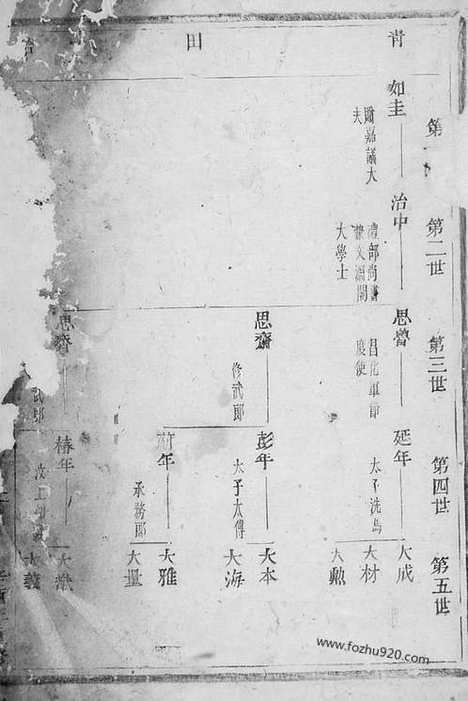 青田
第
第二世
第三世
第四世
第五世
如圭
贈嘉議大
夫
治中
禮部尚書
兼文淵閣
大學士
思魯
昌化軍節
度使
延年
太子洗馬
大成
大材
大勲
思齋
修武郎
彭年
太子太傅
大本
大海
年
承務郎
大雅
大量
思
武郎
椿年
大猷
大義
www.fozhu920.com